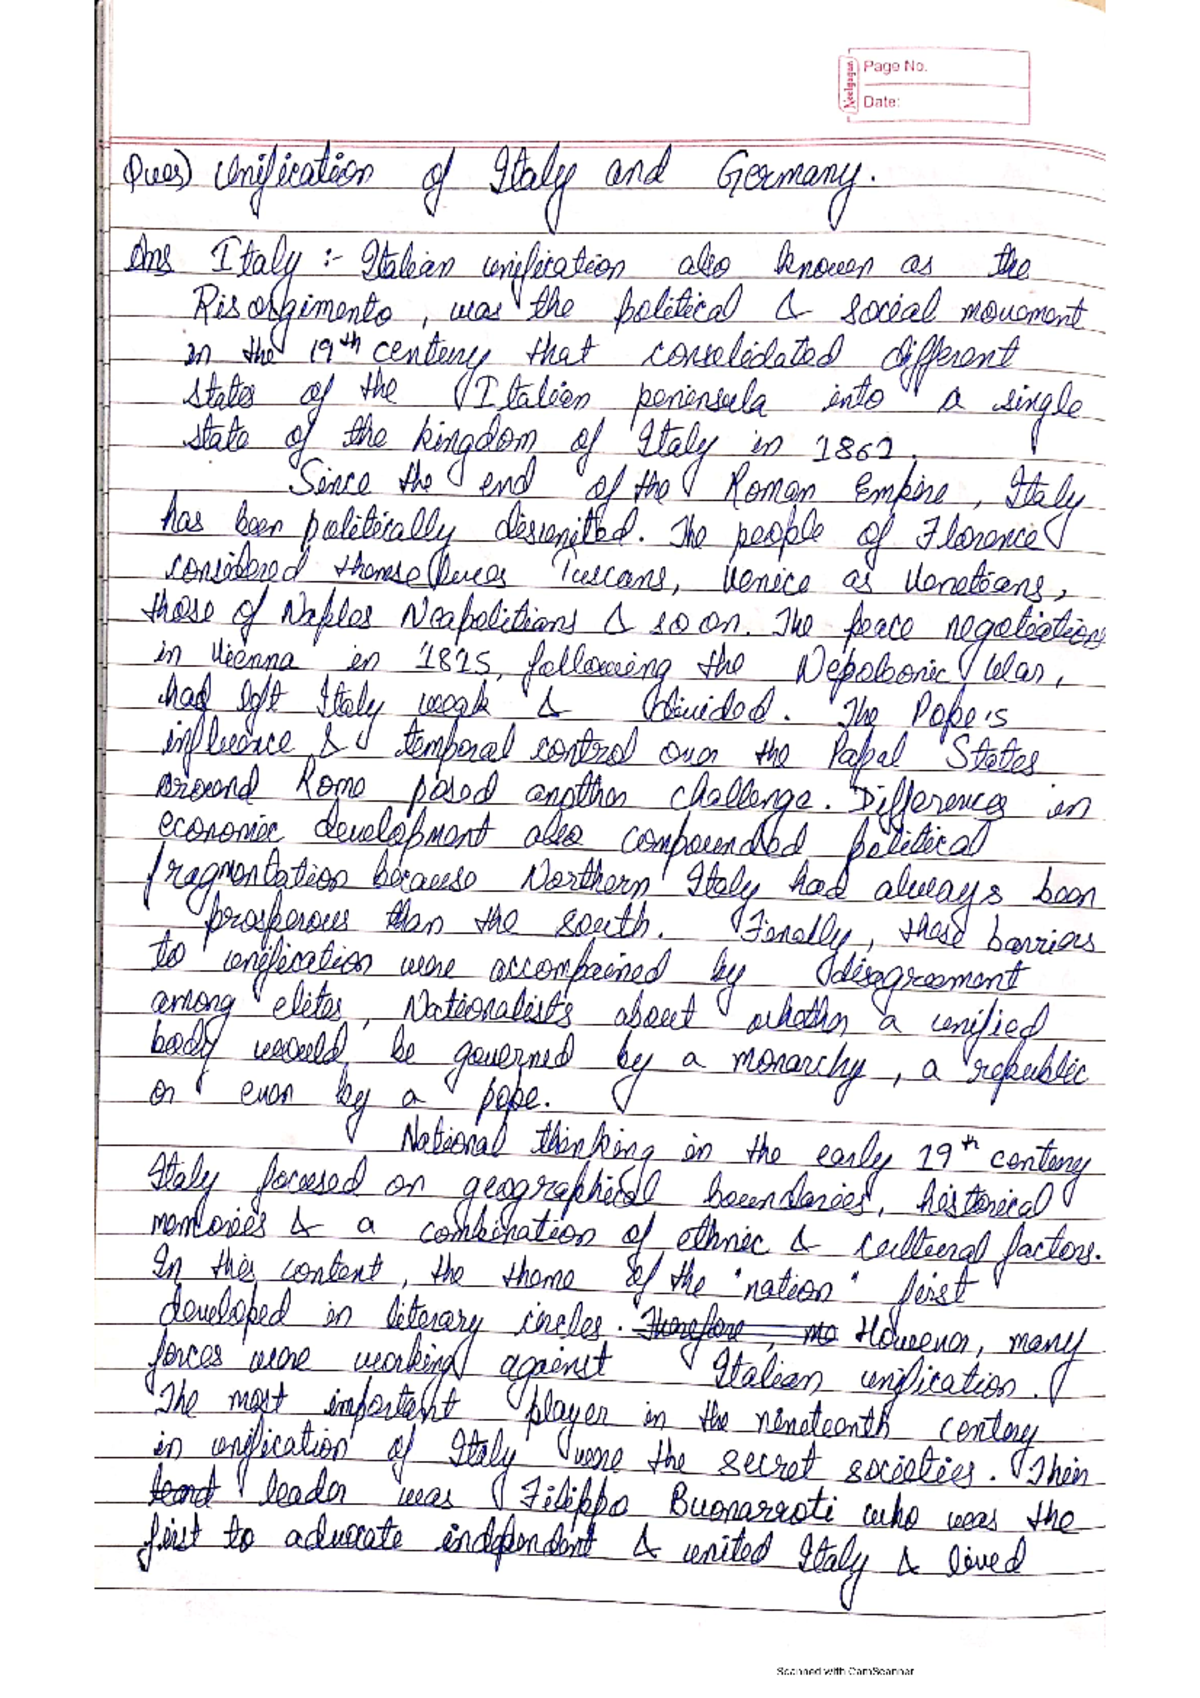 Neelgagan
Page No.
Date:
Ques) Unification of Italy and Germany.
Ans Italy :- Italian unification also known as the
Risorgimento, was the political & social movement
in the 19th century that consolidated different
states of the Italian peninsula into a single
state of the kingdom of Italy in 1862.
Since the end of the Roman Empire, Italy
has been politically disunited. The people of Florence
considered themselves Tuscans, Venice as Venetians,
those of Naples Neapolitians & so on. The peace negotiations
in Vienna in 1815, following the Nepoleonic War,
had left Italy weak & divided. The Pope's
influence & temporal control over the Papal States
around Rome posed another challenge. Differences in
economic development also compounded political
fragmentation because Northern Italy had always been
prosperous than the south. Finally, these barriers
to unification were accompained by disagreement
among elites, Nationalists about whether a unified
body would be governed by a monarchy, a republic
or even by a pope.
National thinking in the early 19th century
Italy focused on geographical boundaries, historical
memories & a combination of ethnic & cultural factors.
In this content, the theme of the "nation" first
developed in literary circles. Therefore, mo However, many
forces were working against Italian unification.
The most important player in the nineteenth century
in unification of Italy were the secret societies. Their
leader was Filippo Buonarroti who was the
first to advocate independent & united Italy & lived
Scanned with CamScanner